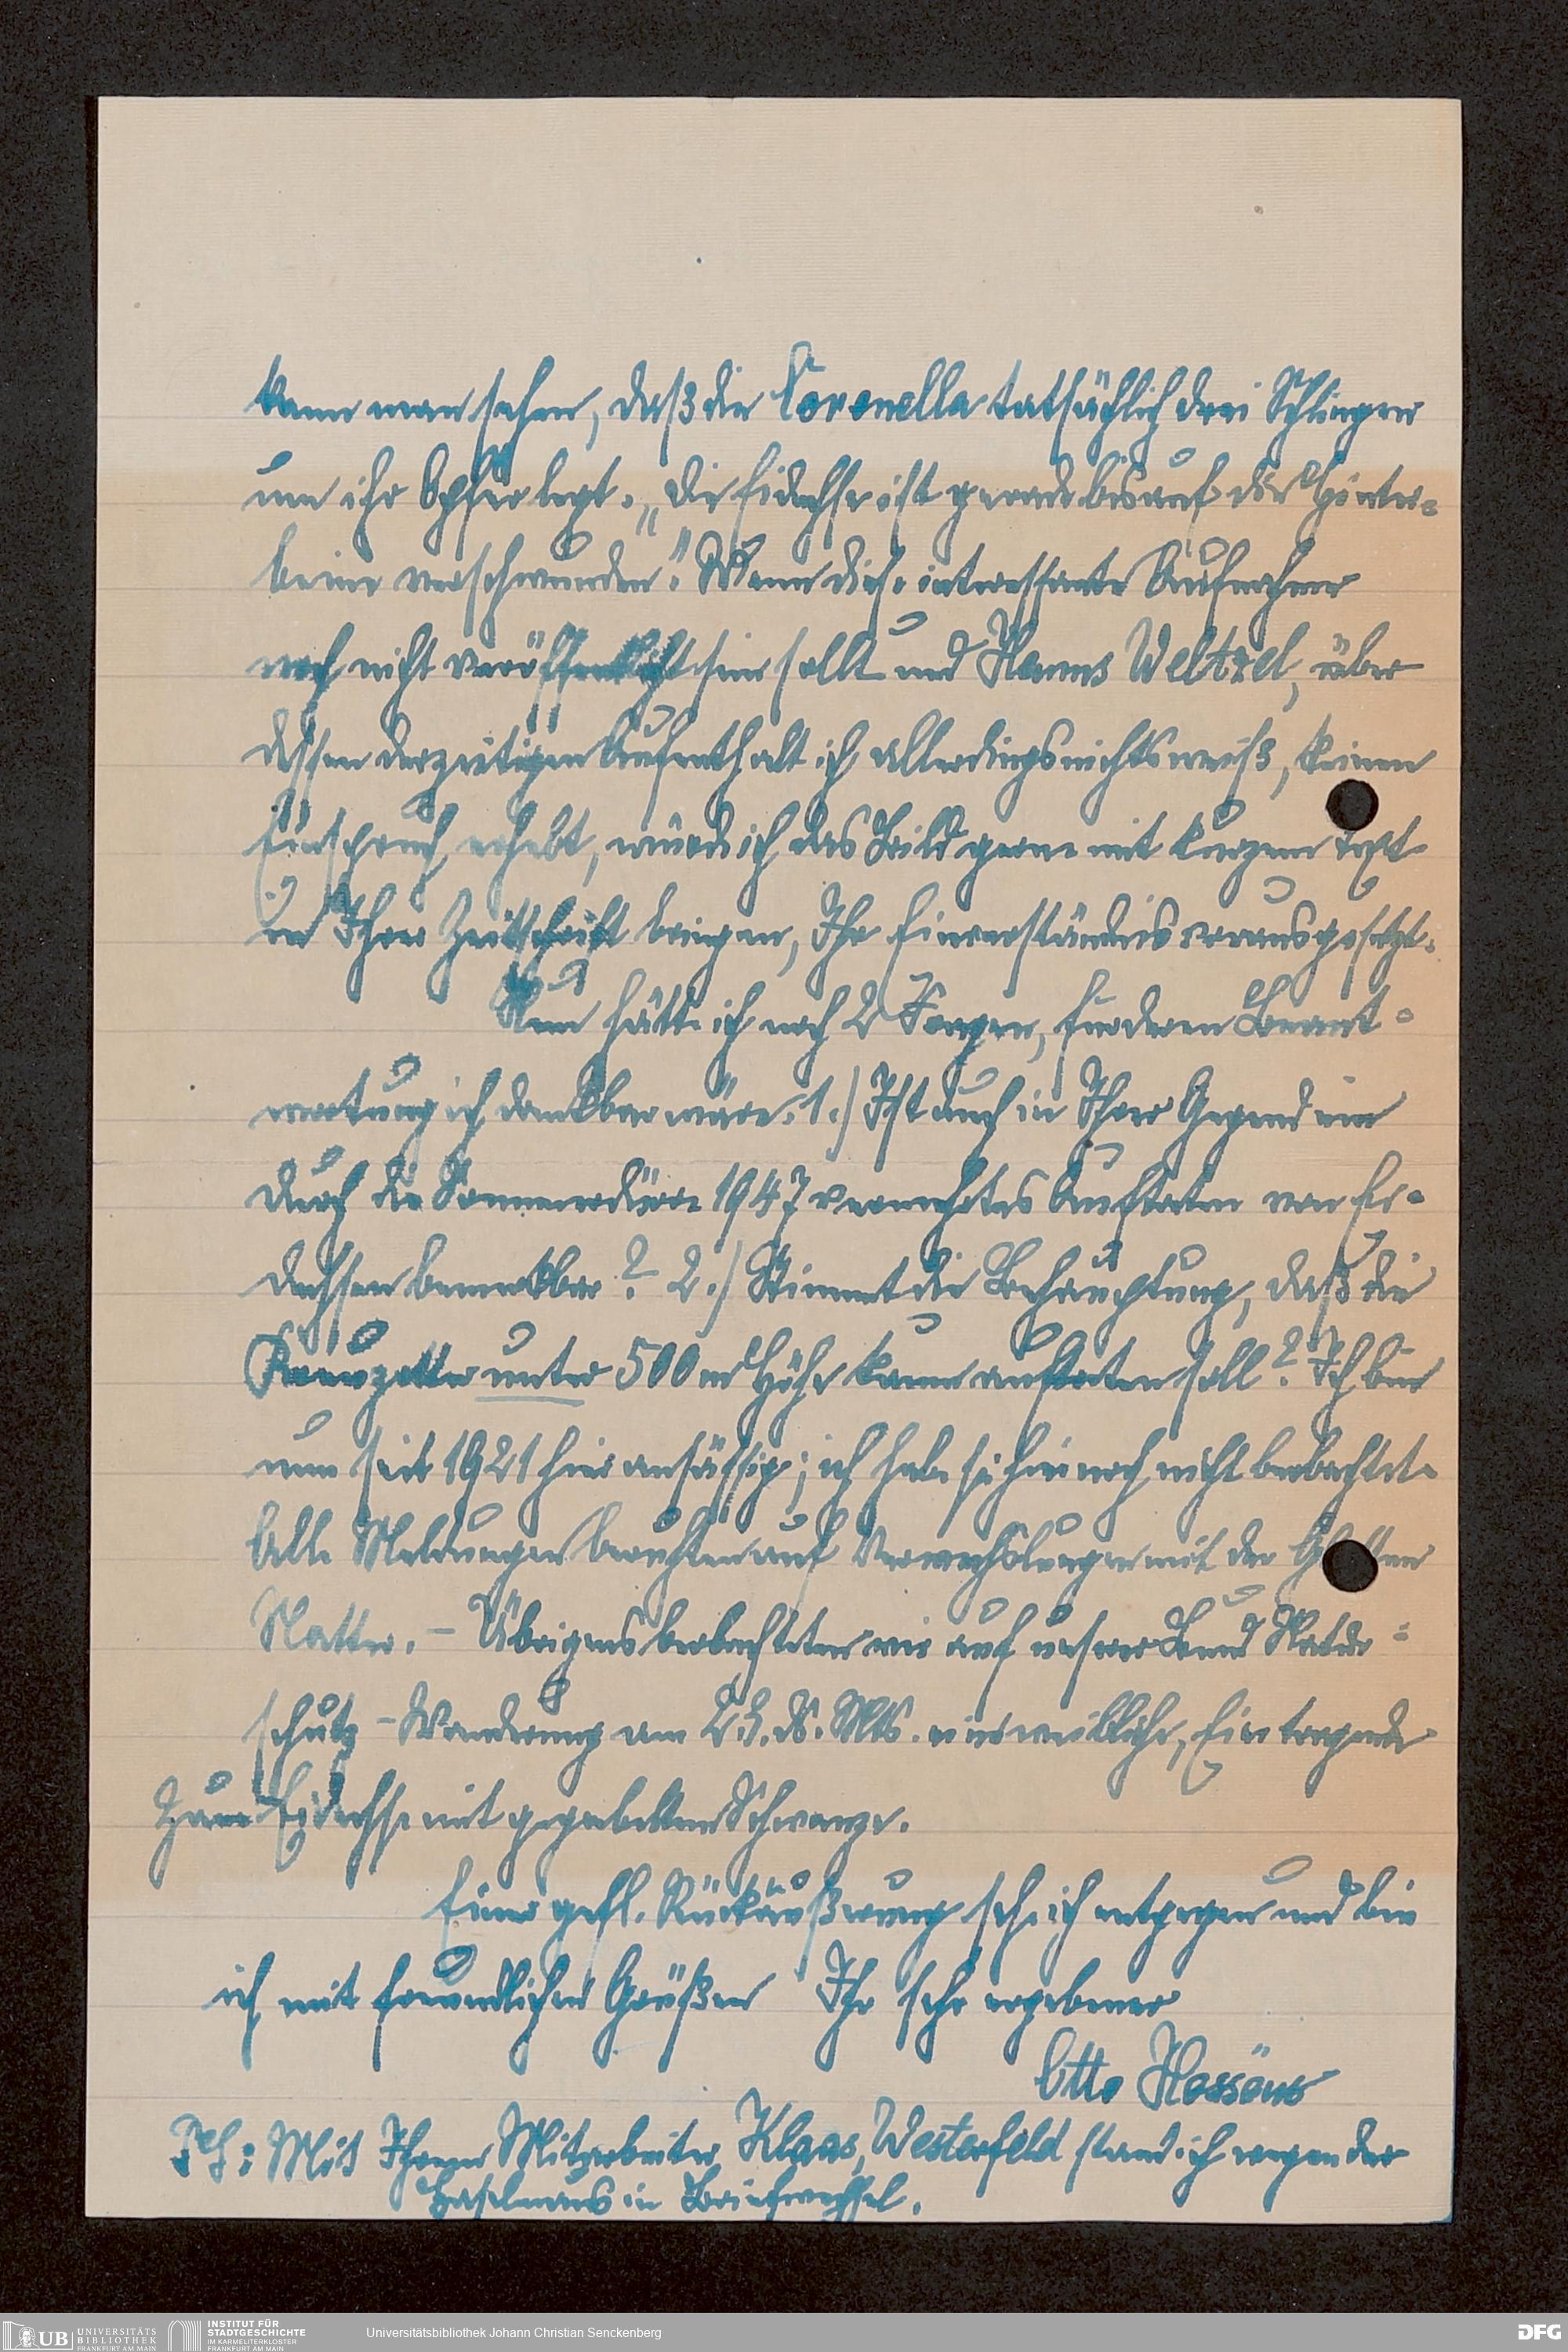 kann man sehen, daß die Coronella tatsächlich drei Schlingen
um ihr Opfer legt. „Die Eidechse ist gerade bis auf die Hinter=
beine verschwunden". Wenn diese interessante Aufnahme
noch nicht veröffentlicht sein sollte und Hanns Weltzel, über
dessen derzeitigen Aufenthalt ich allerdings nichts weiß, keinen
Einspruch erhebt, würde ich das Bild gerne mit kurzem Text
in Ihrer Zeitschrift bringen, Ihr Einverständnis vorausgesetzt.
Nun hätte ich noch 2 Fragen, für deren Beant=
wortung ich dankbar wäre. 1.) Ist auch in Ihrer Gegend ein
durch die Sommerdürre 1947 vermehrtes Auftreten von Ei=
dechsen bemerkbar? 2.) Stimmt die Behauptung, daß die
Kreuzotter unter 500 m Höhe kaum auftreten soll? Ich bin
nun seit 1921 hier ansässig; ich habe sie hier noch nicht beobachtet.
Alle Meldungen beruhten auf Verwechslungen mit der Glatten
Natter. – Übrigens beobachteten wir auf unserer Bund Natur=
schutz – Wanderung am 23. ds. Mts. eine weibliche, Eier tragende
Zaun Eidechse mit gegabeltem Schwanze.
Einer gefl. Rückäußerung sehe ich entgegen und bin
ich mit freundlichen Grüßen Ihr sehr ergebener
Otto
PS: Mit Ihrem Mitarbeiter Klaas, Westerfeld stand ich wegen der
Haselmaus in Briefwechsel.
UB UNIVERSITÄTS
BIBLIOTHEK
FRANKFURT AM MAIN
INSTITUT FÜR
STADTGESCHICHTE
IM KARMELITERKLOSTER
FRANKFURT AM MAIN
Universitätsbibliothek Johann Christian Senckenberg
DFG